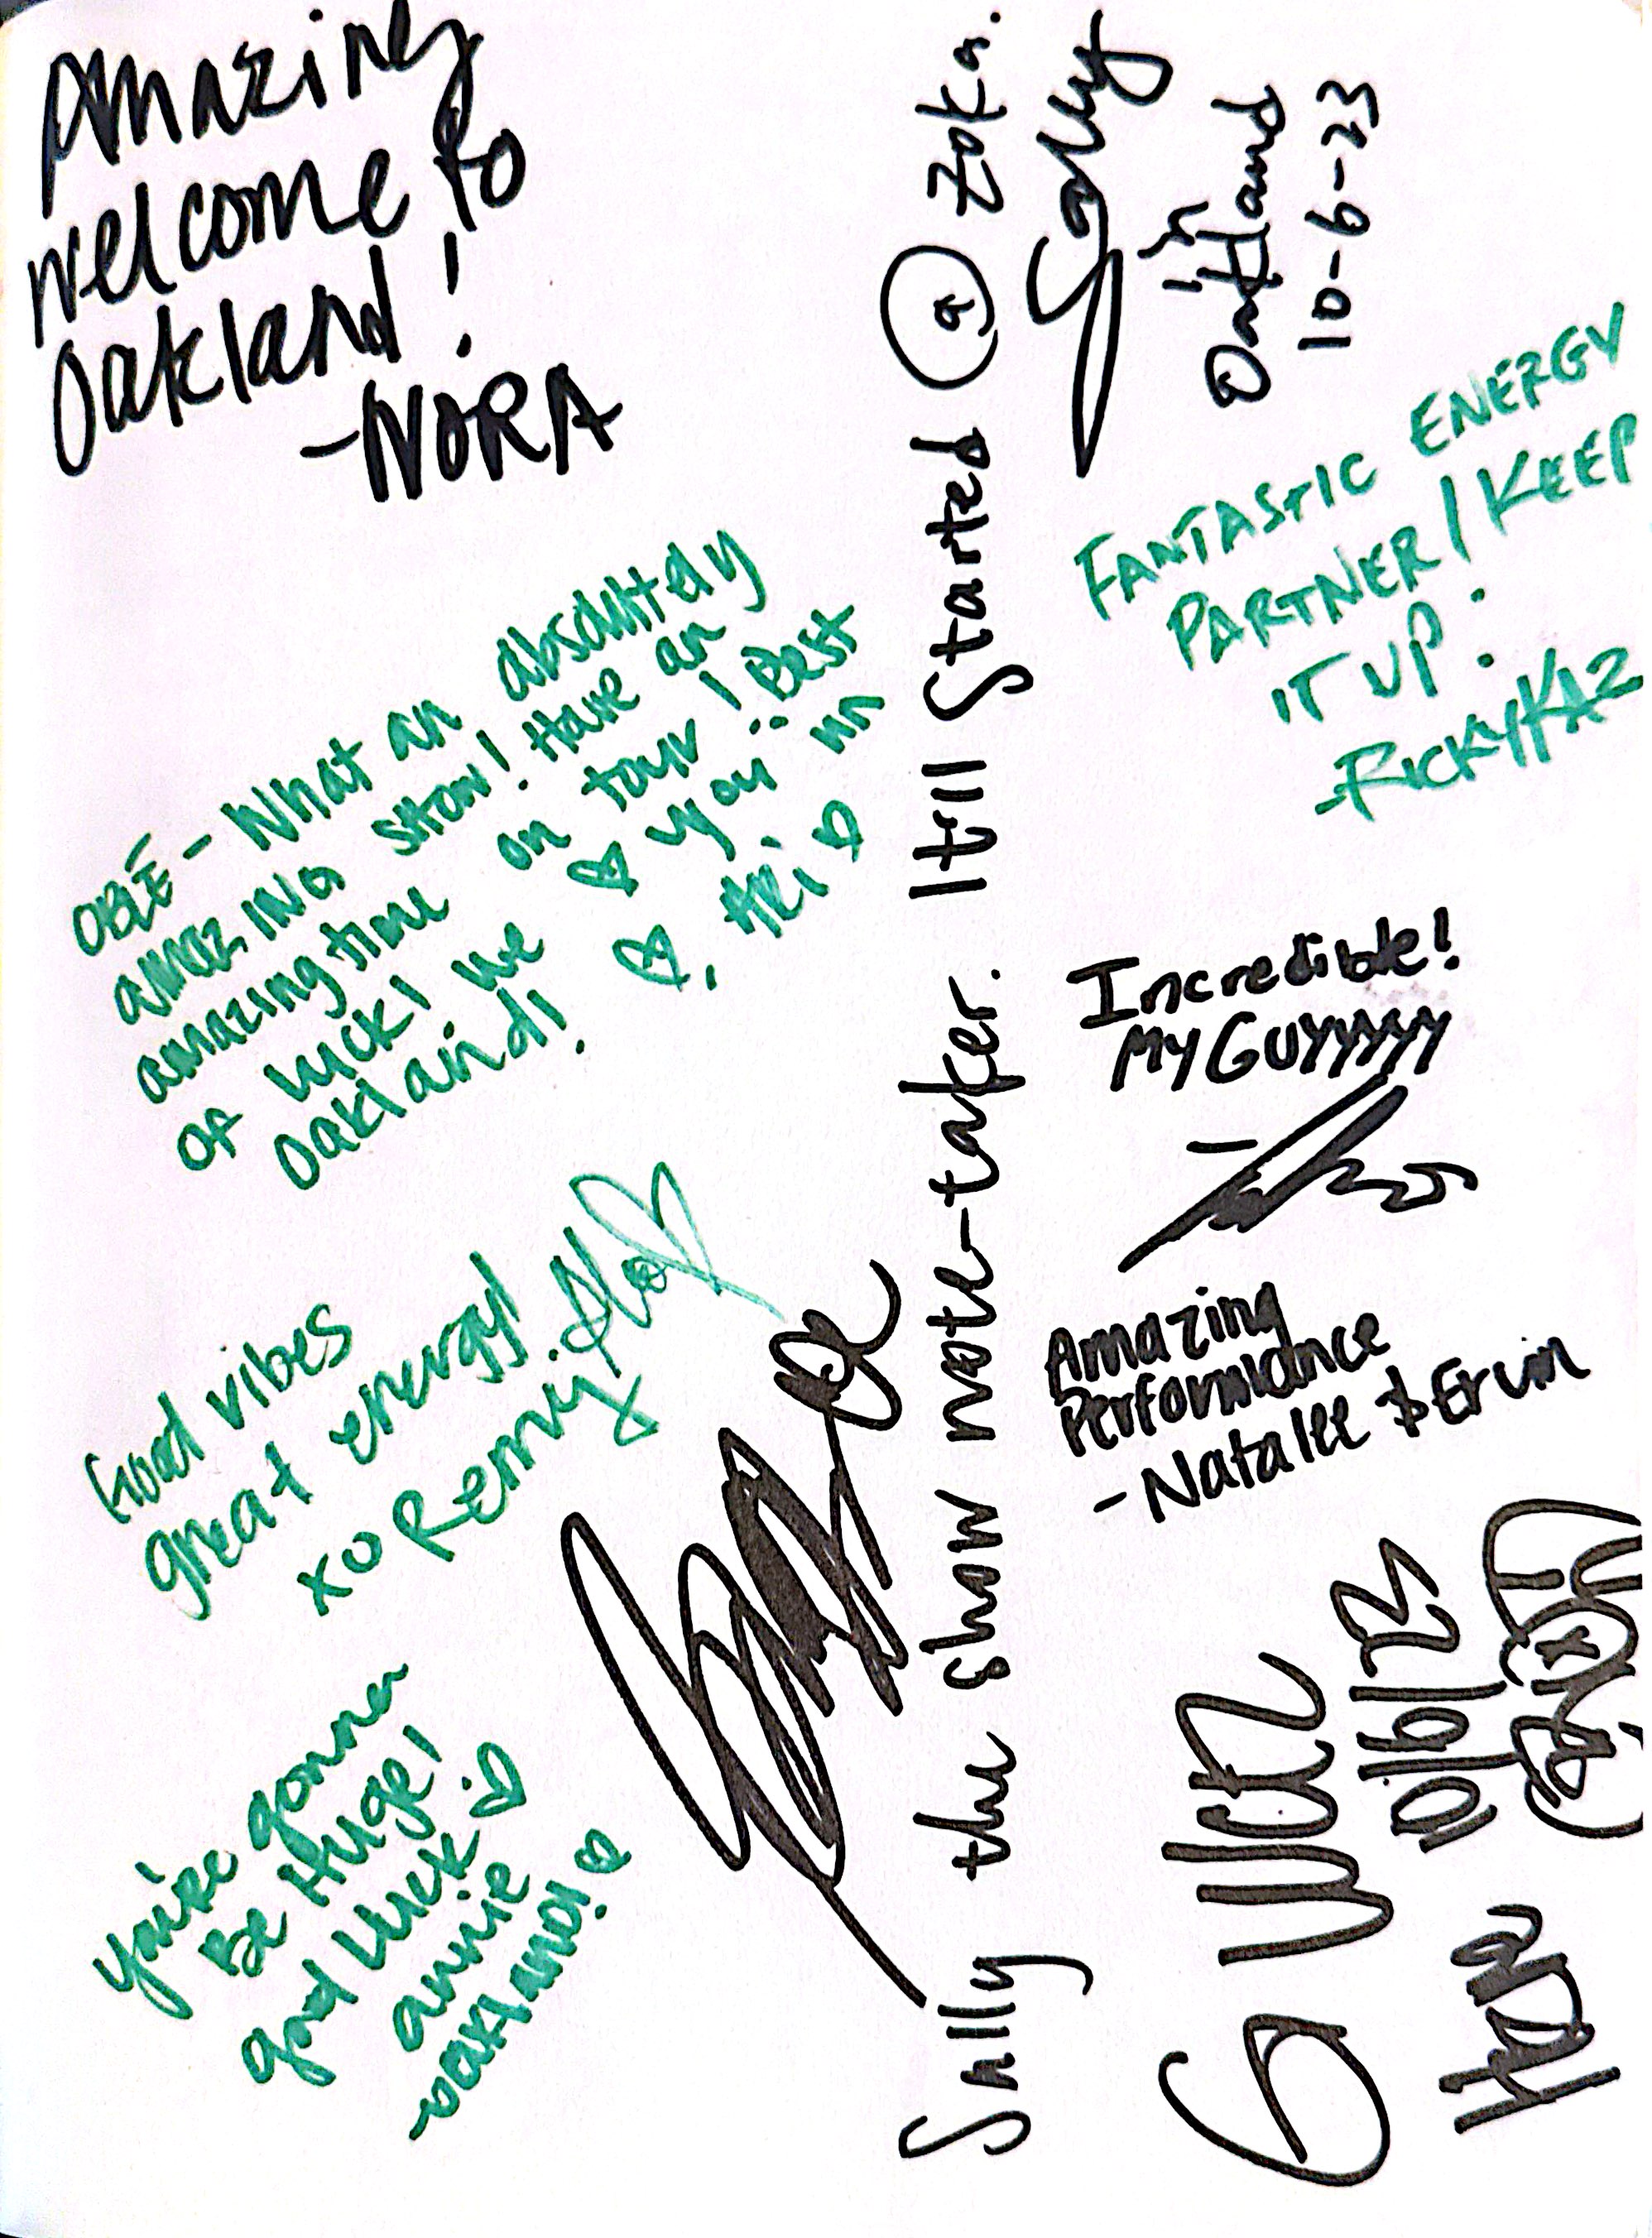 Amazing
welcome to
Oakland!
-NORA
OBÉ - What an absolutely
amazing show! Have an
amazing time on tour! Best
of luck! We ♡ you in
Oakland!
♡, Ari ♡
Good vibes
great energy!
xo Remy
you're gonna
Be Huge!
good luck
annie
-oakland! ♡
Sally the show note-taker. It all started @ Zoka.
Sally
in
Oakland
10-6-23
FANTASTIC ENERGY
PARTNER! KEEP
IT UP!
-RICKYKAZ
Incredible!
MY GUYYYYY
Amazing
Performance
-Natalee & Erum
10/6/23